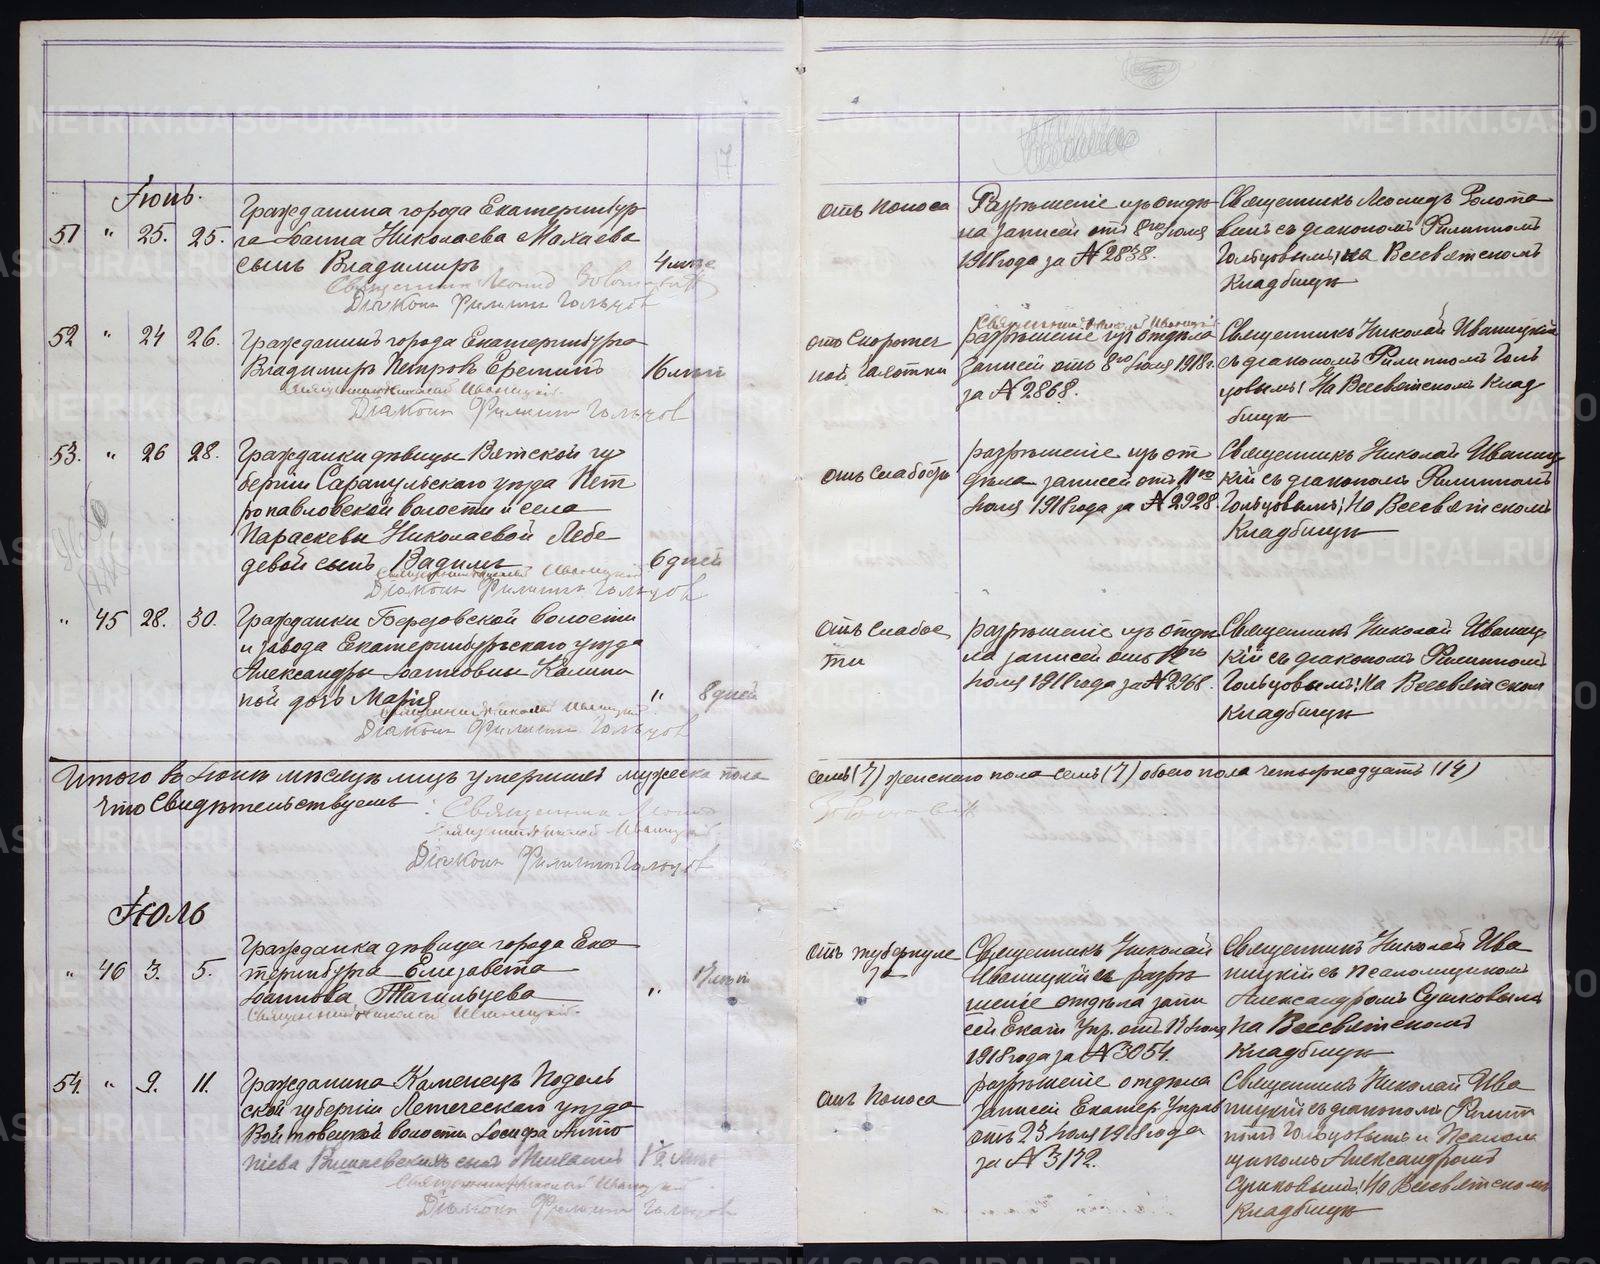 Іюнь.
51 " 25. 25.
Гражданина города Екатеринбур
га Іоанна Николаева Махаева
сынъ Владимиръ
4 мѣс
Священник Леонид
Діаконъ Филиппъ Гольцов
отъ поноса
Разрѣшеніе изъ отдѣ
ла записей отъ 8го Іюля
1918 года за № 2838.
Священникъ Леонидъ
вичъ съ діакономъ Филиппомъ
Гольцовымъ; на Всесвятскомъ
Кладбищѣ
52 " 24 26.
Гражданинъ города Екатеринбурга
Владимиръ Петровъ Еремин
16 лѣт
Священник Николай Иваницкій.
Діаконъ Филиппъ Гольцов
отъ скоротеч
ной чахотки
Священник Николай Иваницкій
разрѣшеніе изъ отдѣла
записей отъ 8го Іюля 1918 г.
за № 2868.
Священникъ Николай Иваницкій
съ діакономъ Филиппомъ Голь
цовымъ; На Всесвятском Клад
бищѣ
53. " 26 28.
Гражданки дѣвицы Вятской гу
берніи Сарапульскаго уѣзда Пет
ропавловской волости и села
Параскевы Николаевой Лебе
девой сынъ Вадимъ
6 дней
Священник Николай Иваницкій
Діаконъ Филиппъ Гольцов
отъ слабости
разрѣшеніе изъ от
дѣла записей отъ 11го
Іюля 1918 года за № 2928
Священникъ Николай Иваниц
кій съ діакономъ Филиппомъ
Гольцовымъ; На Всесвятскомъ
Кладбищѣ
" 45 28. 30.
Гражданки Березовской волости
и завода Екатеринбургскаго уѣзда
Александры Іоанновны Калини
ной дочь Марія
" 8 дней
Священник Николай Иваницкій
Діаконъ Филиппъ Гольцов
отъ слабос
ти
разрѣшеніе изъ отдѣ
ла записей отъ
Іюля 1918 года за № 2968.
Священникъ Николай Иваниц
кій съ діакономъ Филиппомъ
Гольцовымъ; На Всесвятском
Кладбищѣ
Итого въ Іюнѣ мѣсяцѣ лицъ умершихъ мужеска пола
семь (7) женскаго пола семь (7) обоего пола четырнадцать (14)
что свидѣтельствуемъ:
Священник Леонид
Священник Николай Иваницкій
Діаконъ Филиппъ Гольцов
Іюль
" 46 3. 5.
Гражданка дѣвица города Ека
теринбурга Елизавета
Іоаннова Тагильцева
" 17 лѣт
Священник Николай Иваницкій.
отъ туберкуле
за
Священникъ Николай
Иваницкій съ разрѣ
шеніе отдѣла запи
сей Екат Упр. отъ Іюля
1918 года за № 3054.
Священникъ Николай Ива
ницкій съ псаломщикомъ
Александромъ Сушковымъ
На Всесвятскомъ
Кладбищѣ
54. " 9. 11.
Гражданина Каменецъ Подоль
ской губерніи Летическаго уѣзда
Войтовецкой волости Іосифа Анто
ніева сынъ Михаилъ
Священник Николай Иваницкій
Діаконъ Филиппъ Гольцов
отъ поноса
разрѣшеніе отдѣла
записей Екатер. Управ
отъ 23 Іюля 1918 года
за № 3172.
Священникъ Николай Ива
ницкій съ діакономъ Филип
помъ Гольцовымъ и Псалом
щикомъ Александромъ
Сушковымъ; На Всесвятскомъ
Кладбищѣ
METRIKI.GASO-URAL.RU